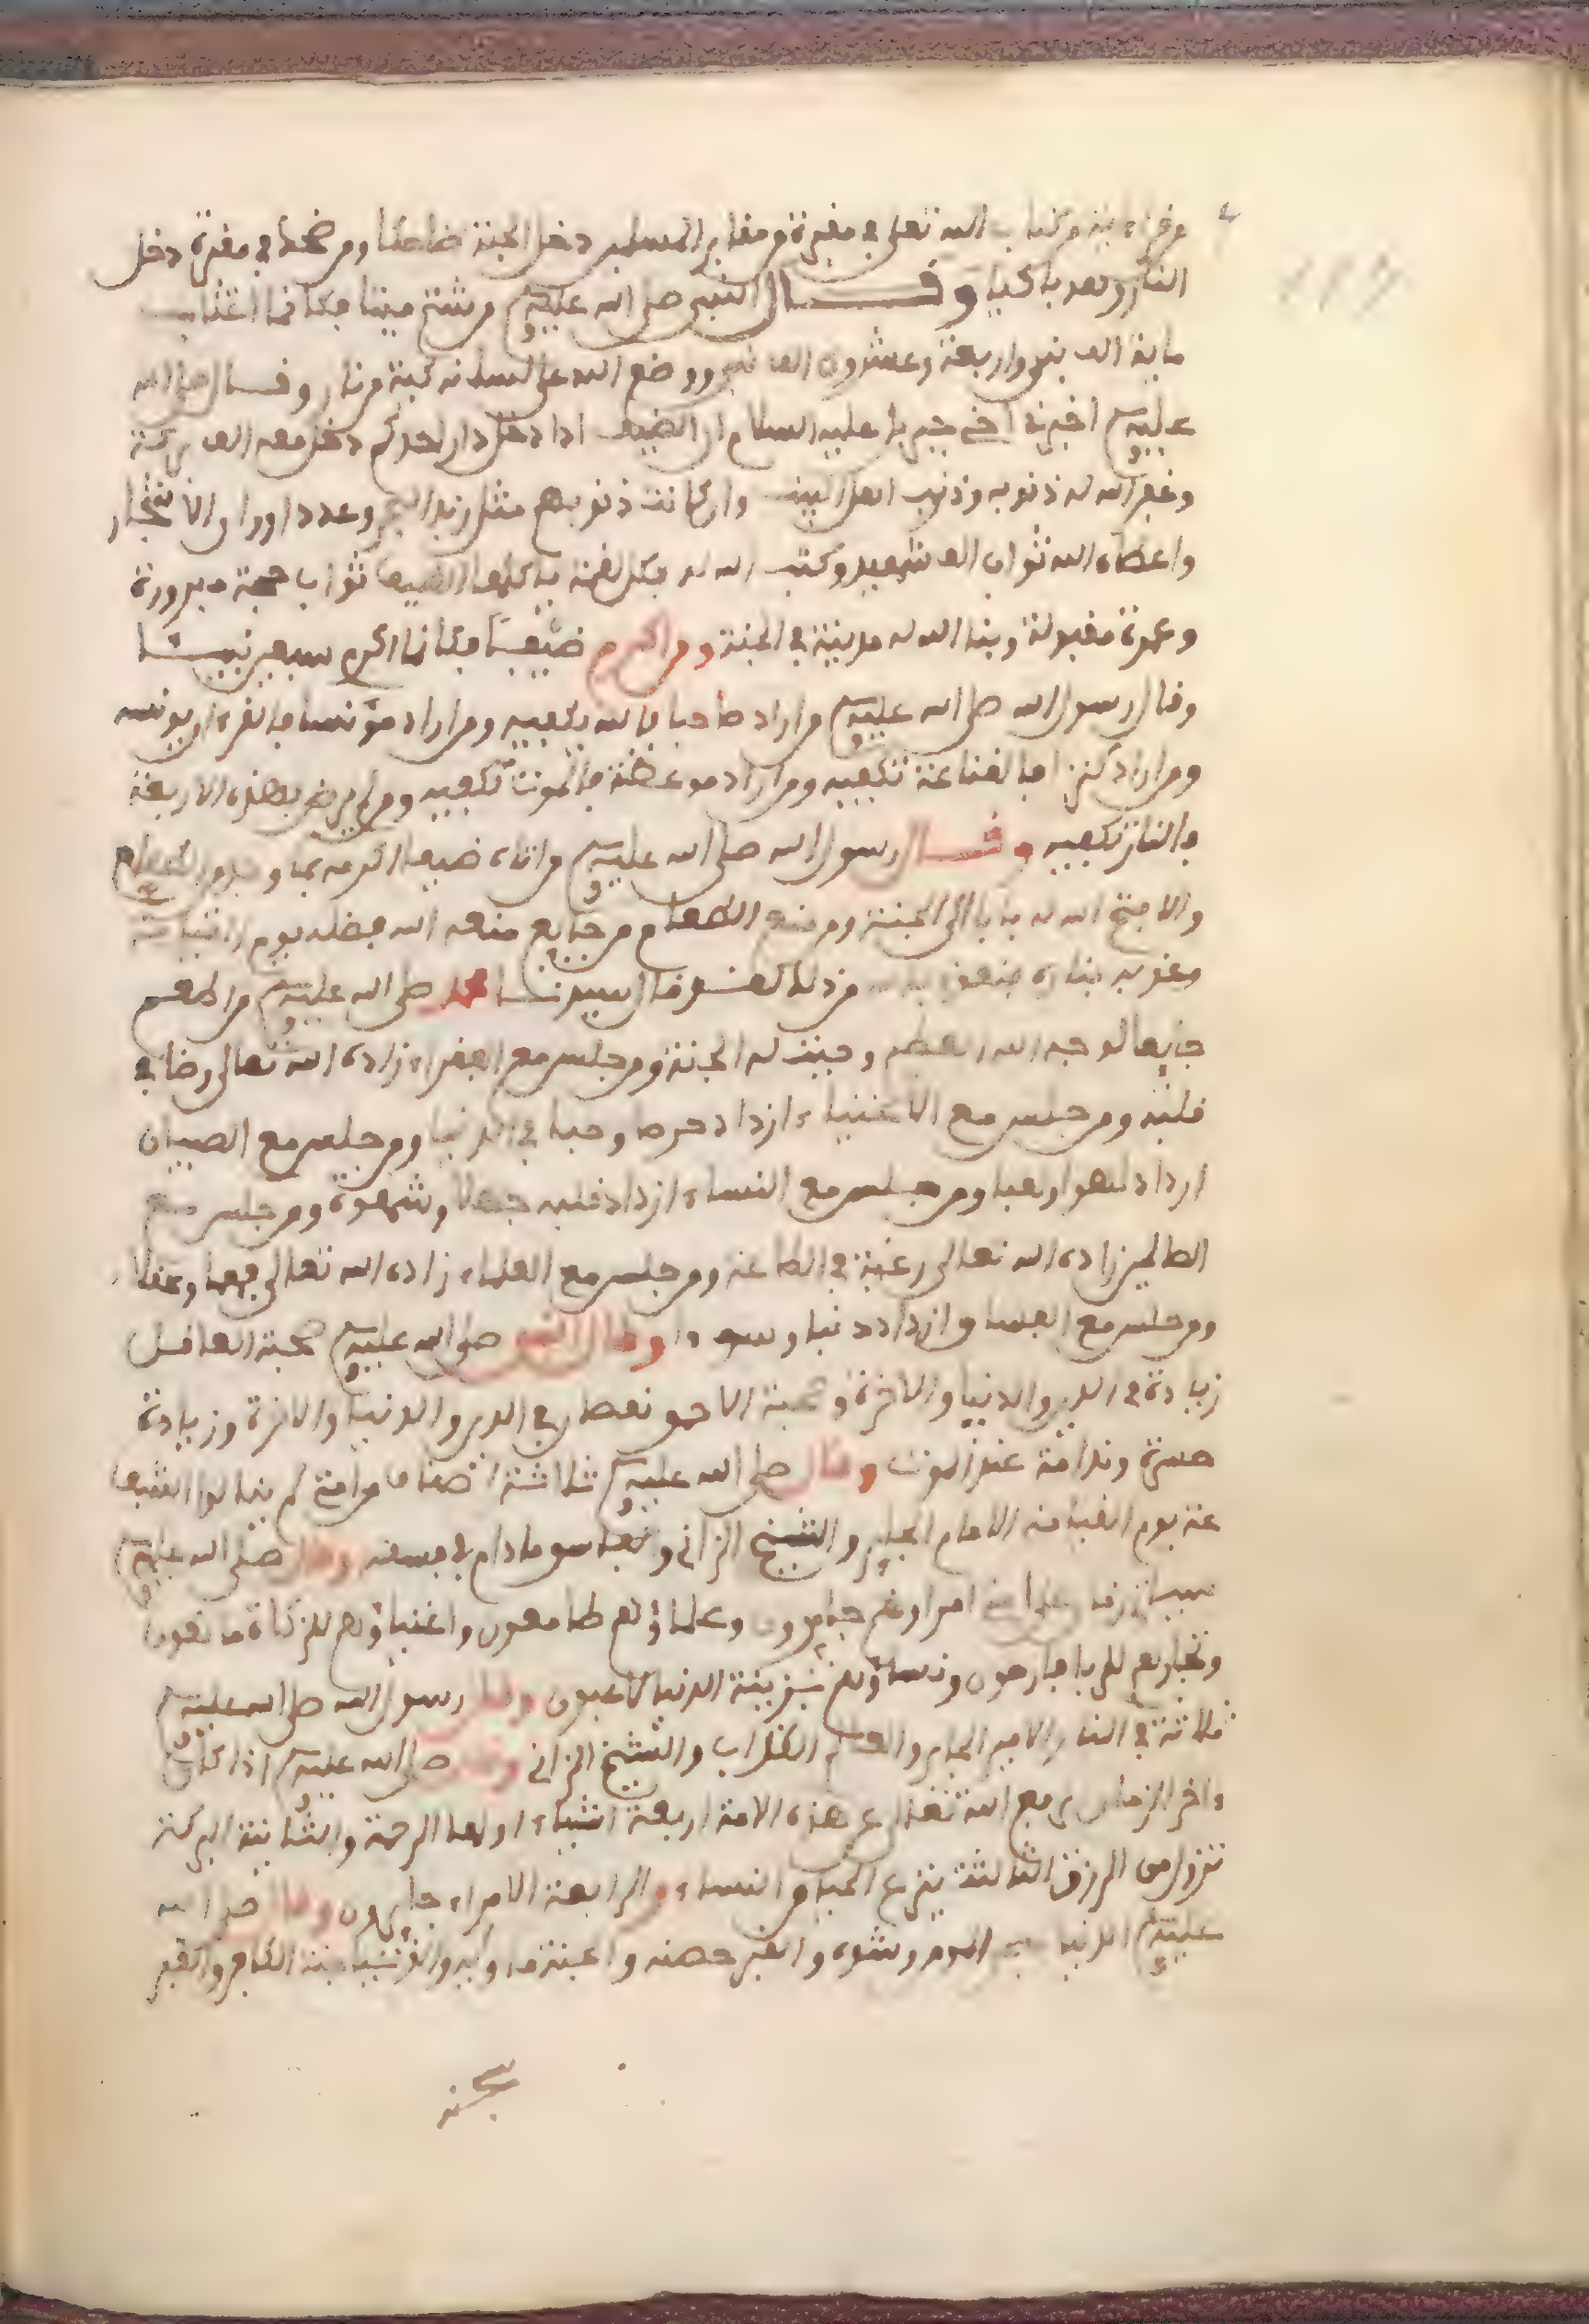 من قرا ءاية من كتاب الله تعلى في مقبرة من مقابر المسلمين دخل الجنة ضاحكا ومن ضحك في مقبرة دخل
النار وهو باكيا وقال النبي صلى الله عليه وسلم من شتم ميتا فكانما اغتاب
ماية الف نبي واربعة وعشرون الف نبي ووضع الله على لسانه كية من نار وقال صلى الله
عليه وسلم اخبرني اخي جبريل عليه السلام ان الضيف اذا دخل دار احدكم دخل معه الف بركة
وغفر الله له ذنوبه وذنوب اهل البيت وان كانت ذنوبهم مثل زبد البحر وعدد اوراق الاشجار
واعطاه الله ثواب الف شهيد وكتب الله له بكل لقمة ياكلها الضيف ثواب حجة مبرورة
وعمرة مقبولة وبنا الله له مدينة في الجنة ومن اكرم ضيفا فكانما اكرم سبعين نبيئا
وقال رسول الله صلى الله عليه وسلم من اراد صاحبا فالله يكفيه ومن اراد مؤنسا فالقرءان يونسه
ومن اراد كنزا فالقناعة تكفيه ومن اراد موعظة فالموت تكفيه ومن لم يرض بهذه الاربعة
فالنار تكفيه وقال رسول الله صلى الله عليه وسلم من اتاه ضيف اكرمه بما وجد من الطعام
والا فتح الله له بابا الى الجنة ومن منع الطعام من جايع منعه الله فضله يوم القيامة
وعذبه بناره من ذلك قال سيدنا محمد صلى الله عليه وسلم من اطعم
جايعا لوجه الله العظيم وجبت له الجنة ومن جلس مع الفقراء زاده الله تعالى رضا في
قلبه ومن جلس مع الاغنياء ازداد حرصا وحبا في الدنيا ومن جلس مع الصبيان
ازداد لهوا ولعبا ومن جلس مع النساء ازداد قلبه جهلا وشهوة ومن جلس مع
الصالحين زاده الله تعالى رغبة في الطاعة ومن جلس مع العلماء زاده الله تعالى فهما وعقلا
ومن جلس مع الفساق ازداد ذنبا وسوءا وقال النبي صلى الله عليه وسلم صحبة العاقل
زيادة في الدين والدنيا والاخرة وصحبة الاحمق نقصان في الدين والدنيا والاخرة وزيادة
حسرة وندامة عند الموت وقال صلى الله عليه وسلم ثلاثة اصناف من امتي لم ينالوا الشفا
عة يوم القيامة الامام الجاير والشيخ الزاني والفاسق ما دام في فسقه وقال صلى الله عليه وسلم
سياتي زمان على امتي امراؤهم جايرون وعلماؤهم طامعون واغنياؤهم للزكاة مانعون
وتجارهم للربا ونساؤهم بزينة الدنيا لاعبون وقال رسول الله صلى الله عليه وسلم
ثلاثة في النار الامير الجاير والعالم الكذاب والشيخ الزاني وقال صلى الله عليه وسلم اذا كان
ءاخر الزمان يرفع الله تعالى عن هذه الامة اربعة اشياء اولها الرحمة والثانية البركة
تزول من الرزق الثالثة ينزع الحيا من النساء والرابعة الامراء جايرون وقال صلى الله
عليه وسلم الدنيا سجن المومن وشوه والقبر حصنه والجنة ماواه والدنيا جنة الكافر والقبر
سجنه